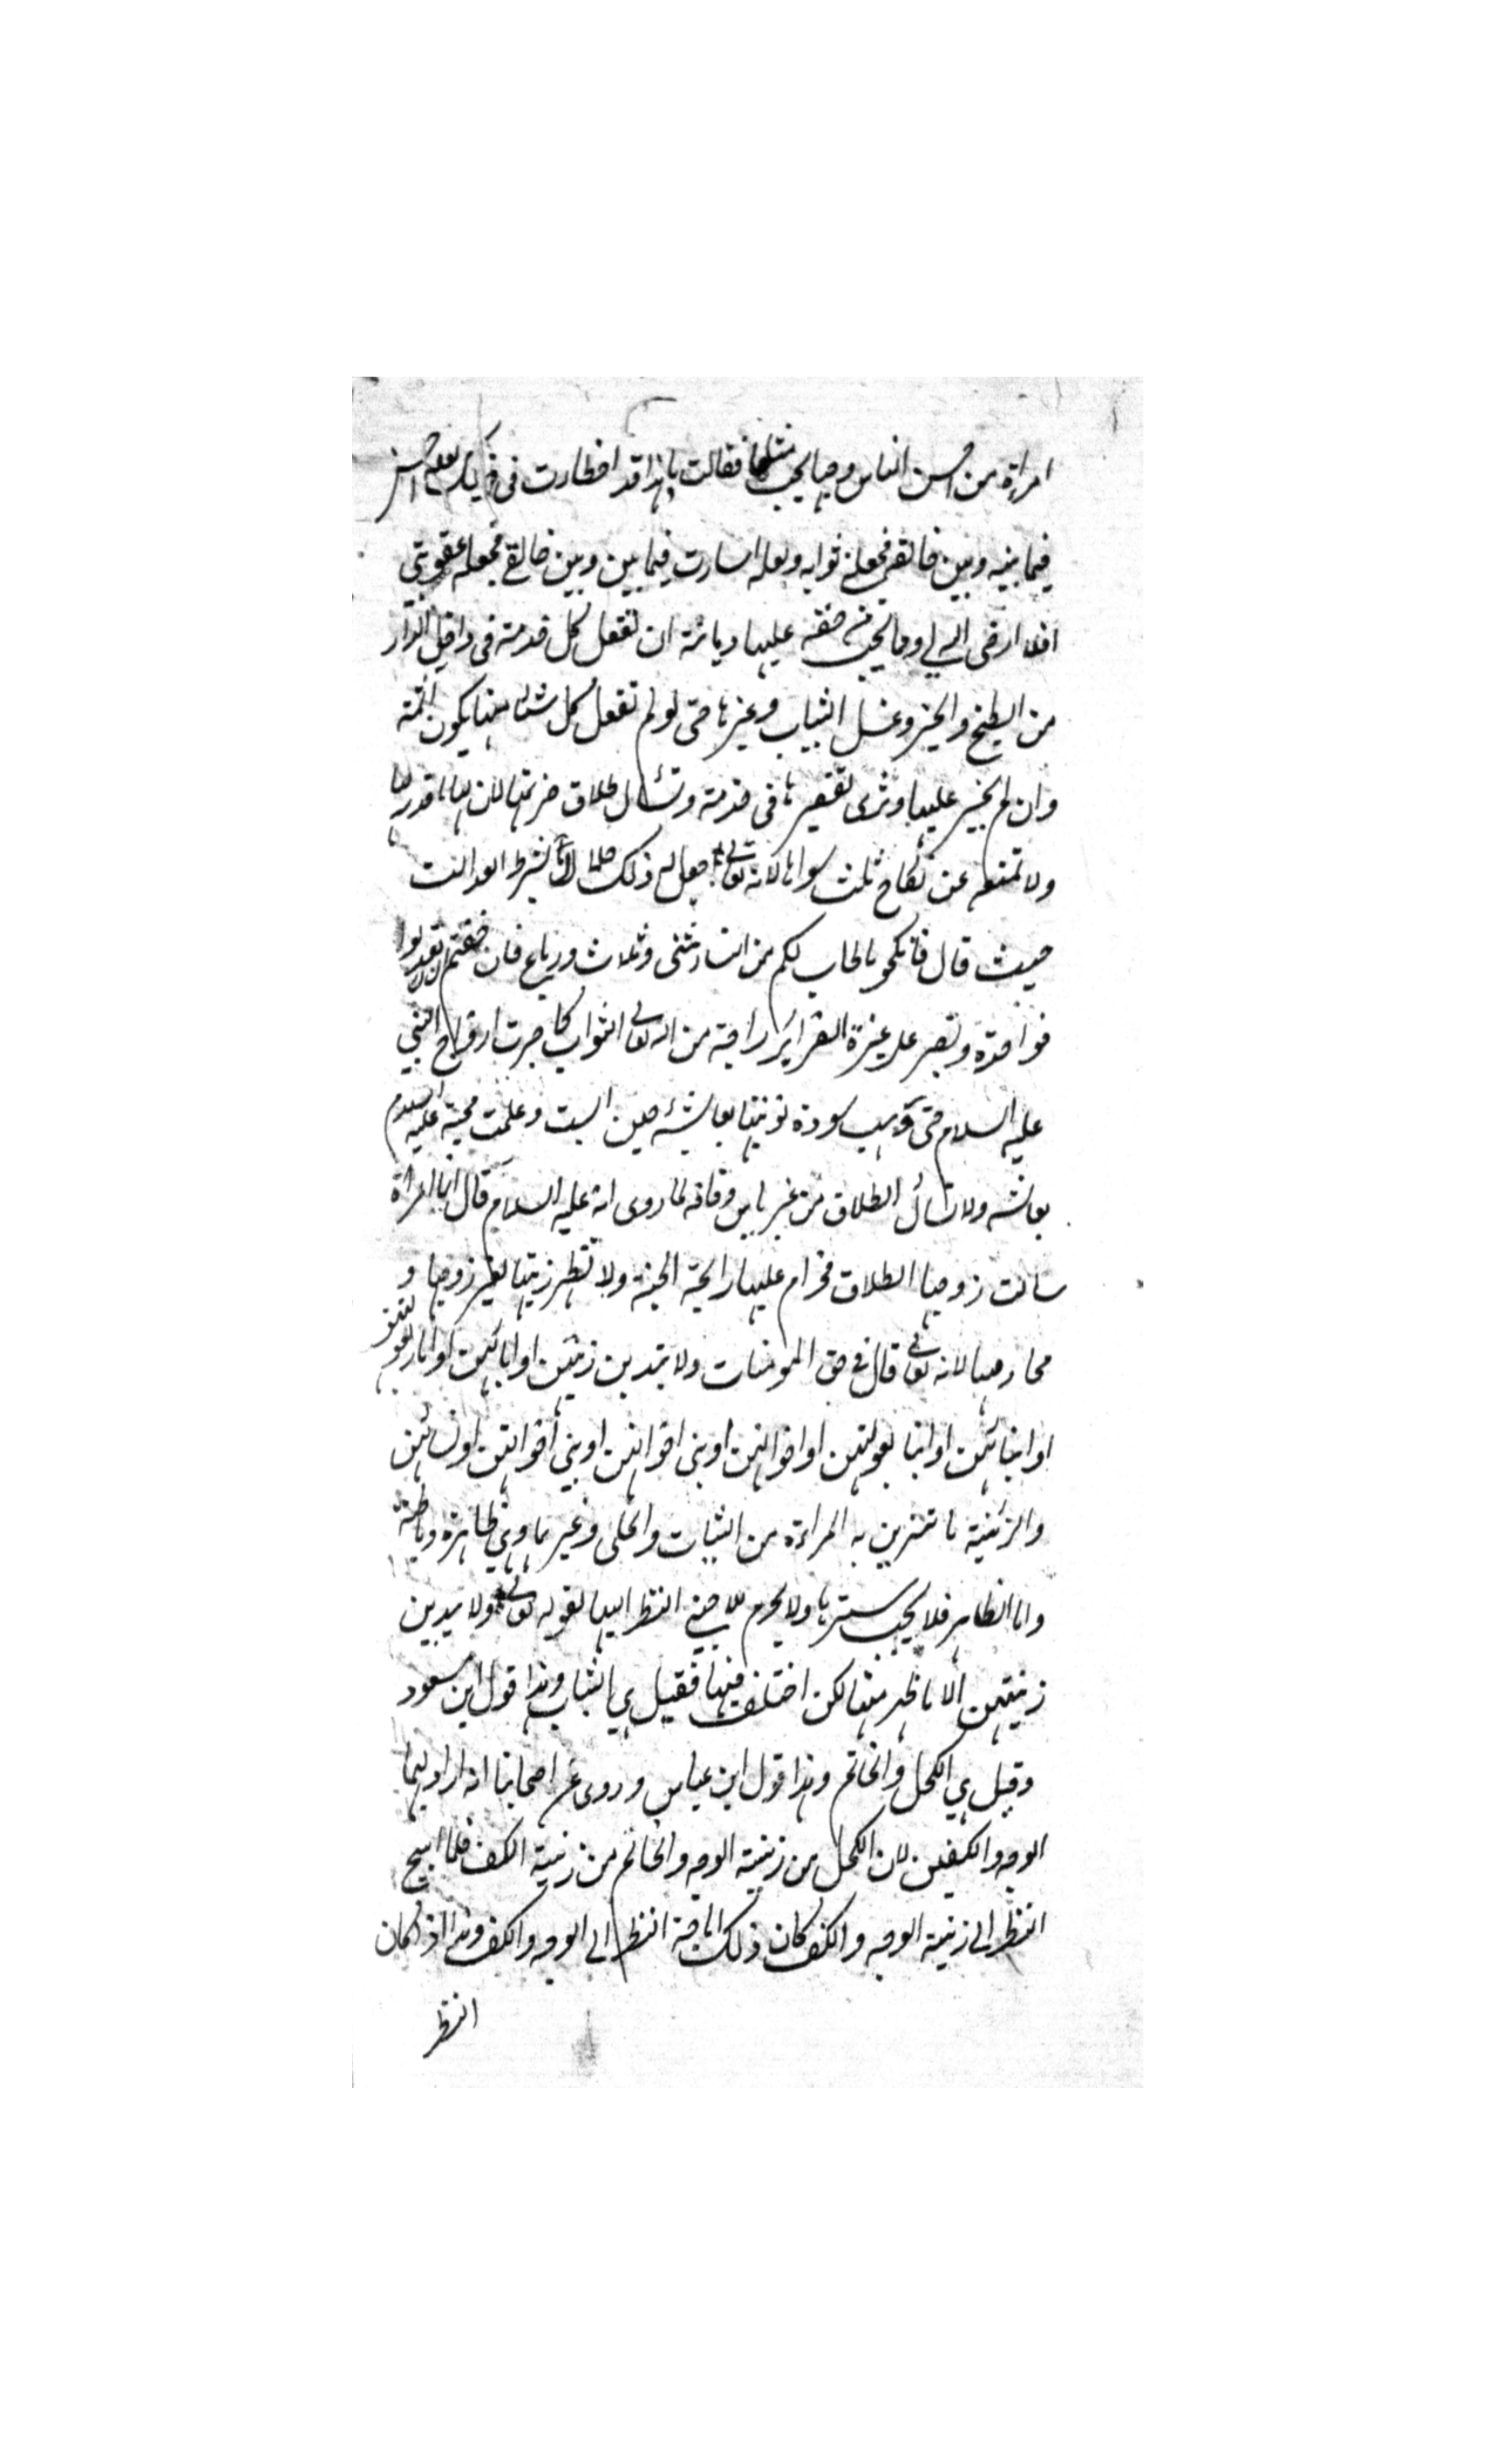 امراة من احسن الناس وجها يجب مثلها فقالت يا هذا قد اخطات في قولك لعله احسن
فيما بينه وبين خالقه فجعلني ثوابه ولعله اسات فيما بيني وبين خالقي فجعله عقوبتي
افلا ارضى الى ومما يجب من حقه عليها ديانة ان تفعل كل خدمة في داخل الدار
من الطبخ والخبز وغسل الثياب وغيرها حتى لو لم تفعل كل شئ منها يكون اثمة
وان لم يجبر عليها وترى تقصيرها في خدمة وتسأل طلاق ضرتها لان لها ما قدر لها
ولا تمنعه عن نكاح ثلث سواها لانه تعالى جعل له ذلك حلالا بشرط العدالت
حيث قال فانكحوا ما طاب لكم من النساء مثنى وثلاث ورباع فان خفتم ان لا تعدلوا
فواحدة وتصبر على غيرة الضراير راجية من الله تعالى الثواب كما صبرت ازواج النبي
عليه السلام حتى وهب سودة نوبتها بعايشه حين اسنت وعلمت محبة عليه السلام
بعايشه ولا تسأل الطلاق من غير باس وفاقه لما روى انه عليه السلام قال ايما امراة
سالت زوجها الطلاق فحرام عليها رايحة الجنة ولا تظهر زينتها لغير زوجها و
محارمها لانه تعالى قال في حق المومنات ولا يبدين زينتهن او ابائهن او اباء بعولتهن
او ابنائهن او ابنا بعولتهن او اخوانهن او بني اخوانهن او بني اخواتهن او نسائهن
والزينة ما تتزين به المراة من الثياب والحلى وغيرهما وهي ظاهرة وباطنة
واما الظاهر فلا يجب سترها ولا يحرم للاجنبي النظر اليها لقوله تعالى ولا يبدين
زينتهن الا ما ظهر منها لكن اختلف فيها فقيل هي الثياب وهذا قول ابن مسعود
وقيل هي الكحل والخاتم وهذا قول ابن عباس وروى عن اصحابنا انه اراد بهما
الوجه والكفين لان الكحل من زينة الوجه والخاتم من زينة الكف فلما ابيح
النظر الى زينة الوجه والكف كان ذلك اباحة النظر الى الوجه والكف وهذا اذا كان
النظر